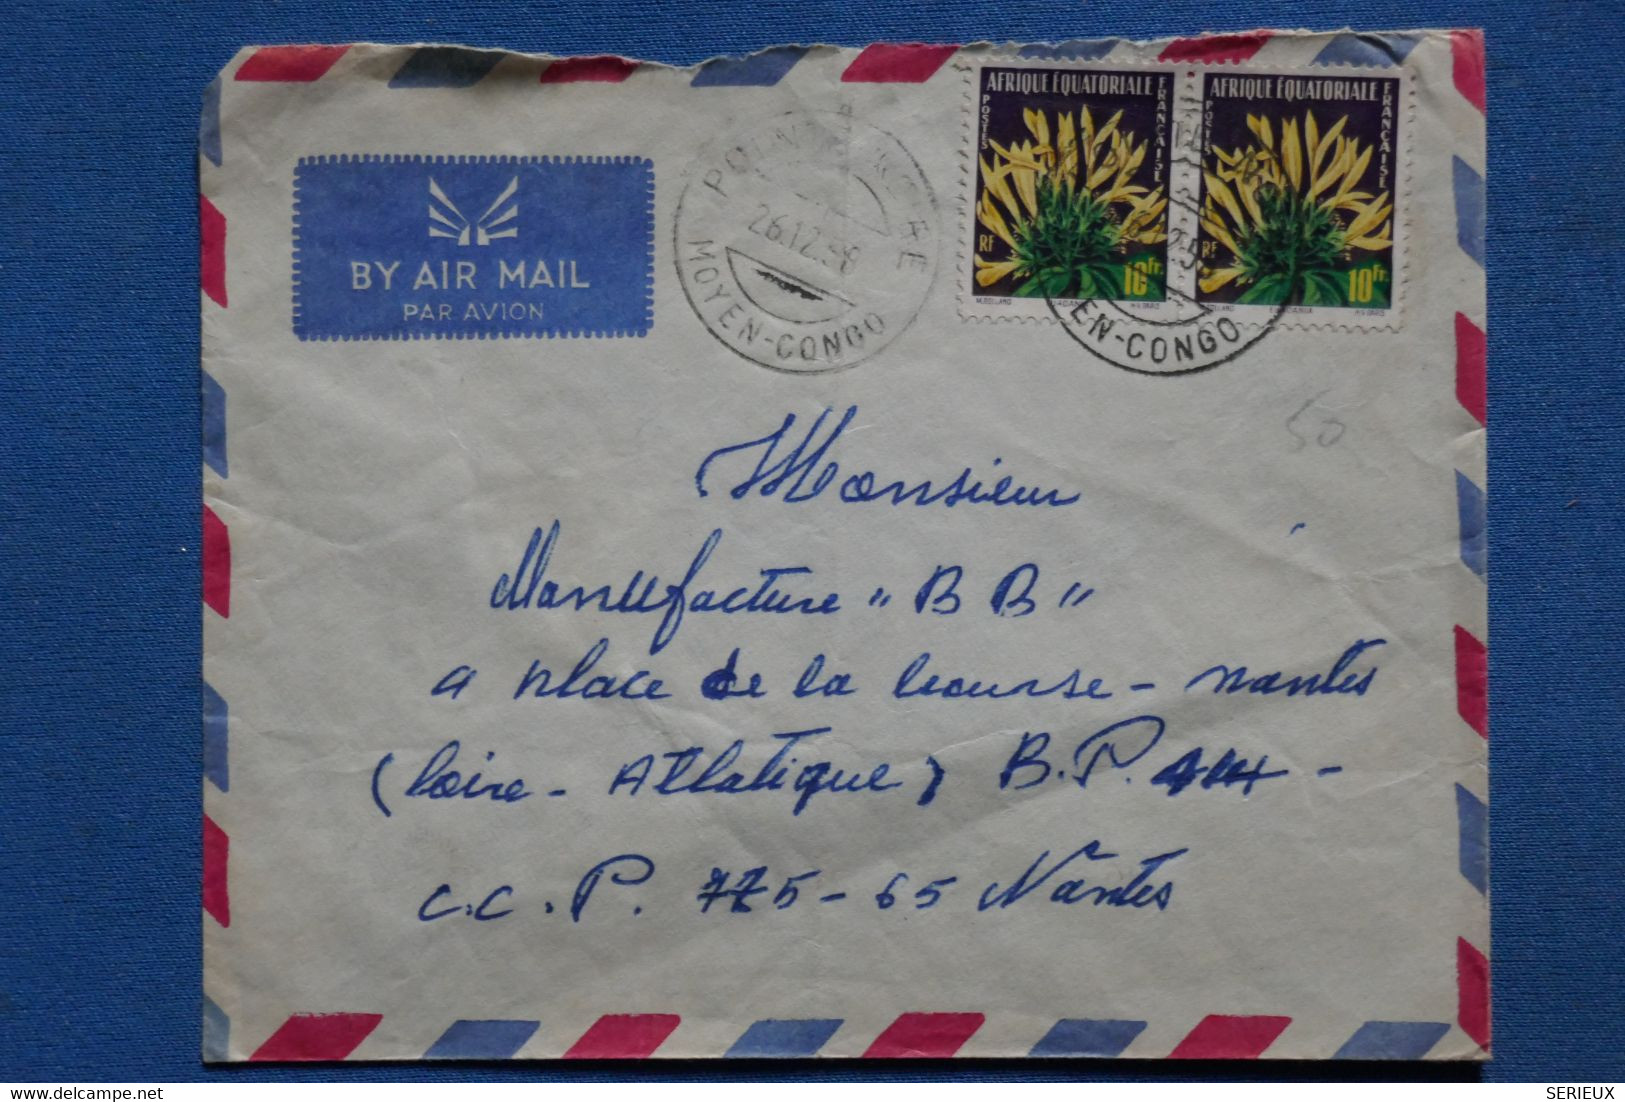 AFRIQUE ÉQUATORIALE FRANÇAISE
POSTES
RF
10Fr.
AFRIQUE ÉQUATORIALE FRANÇAISE
POSTES
RF
10Fr.
BY AIR MAIL
PAR AVION
POINTE NOIRE
26.12.58
MOYEN-CONGO
EN-CONGO
50
Monsieur
Manufacture "BB"
9 place de la bourse - nantes
(loire - Atlatique) B.P. 414 -
C.C.P. 775-65 Nantes
Delcampe.net
SERIEUX